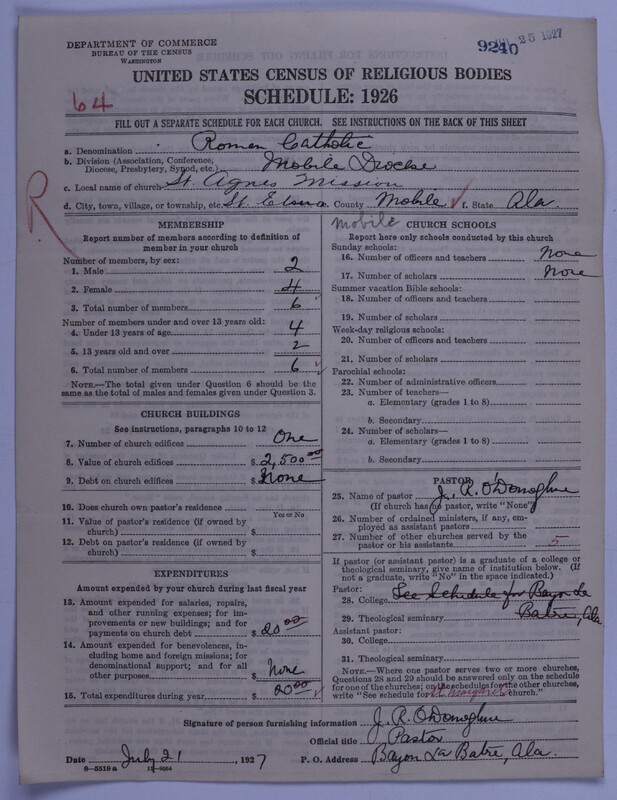 DEPARTMENT OF COMMERCE
BUREAU OF THE CENSUS
WASHINGTON
9240
25 1927
UNITED STATES CENSUS OF RELIGIOUS BODIES
SCHEDULE: 1926
64
FILL OUT A SEPARATE SCHEDULE FOR EACH CHURCH. SEE INSTRUCTIONS ON THE BACK OF THIS SHEET
R
a. Denomination Roman Catholic
b. Division (Association, Conference, Diocese, Presbytery, Synod, etc.) Mobile Diocese
c. Local name of church St. Agnes Mission
d. City, town, village, or township, etc. St. Elmo e. County Mobile f. State Ala.
MEMBERSHIP
Report number of members according to definition of member in your church
Number of members, by sex:
1. Male 2
2. Female 4
3. Total number of members 6
Number of members under and over 13 years old:
4. Under 13 years of age 4
5. 13 years old and over 2
6. Total number of members 6
NOTE.—The total given under Question 6 should be the same as the total of males and females given under Question 3.
CHURCH BUILDINGS
See instructions, paragraphs 10 to 12
7. Number of church edifices One
8. Value of church edifices $ 2,500 00
9. Debt on church edifices $ None
10. Does church own pastor's residence
Yes or No
11. Value of pastor's residence (if owned by church) $
12. Debt on pastor's residence (if owned by church) $
EXPENDITURES
Amount expended by your church during last fiscal year
13. Amount expended for salaries, repairs, and other running expenses; for improvements or new buildings; and for payments on church debt $ 20 00
14. Amount expended for benevolences, including home and foreign missions; for denominational support; and for all other purposes $ None
15. Total expenditures during year $ 20 00
Mobile
CHURCH SCHOOLS
Report here only schools conducted by this church
Sunday schools:
16. Number of officers and teachers None
17. Number of scholars None
Summer vacation Bible schools:
18. Number of officers and teachers
19. Number of scholars
Week-day religious schools:
20. Number of officers and teachers
21. Number of scholars
Parochial schools:
22. Number of administrative officers
23. Number of teachers—
a. Elementary (grades 1 to 8)
b. Secondary
24. Number of scholars—
a. Elementary (grades 1 to 8)
b. Secondary
PASTOR
25. Name of pastor J. R. O'Donoghue
(If church has no pastor, write "None")
26. Number of ordained ministers, if any, employed as assistant pastors
27. Number of other churches served by the pastor or his assistants 5
If pastor (or assistant pastor) is a graduate of a college or theological seminary, give name of institution below. (If not a graduate, write "No" in the space indicated.)
Pastor:
28. College See Schedule for Bayou La
29. Theological seminary Batre, Ala.
Assistant pastor:
30. College
31. Theological seminary
NOTE.—Where one pastor serves two or more churches, Questions 28 and 29 should be answered only on the schedule for one of the churches; on the schedules for the other churches, write "See schedule for church."
Signature of person furnishing information J. R. O'Donoghue
Official title Pastor
Date July 21, 1927 P. O. Address Bayou La Batre, Ala.
8—5518 a